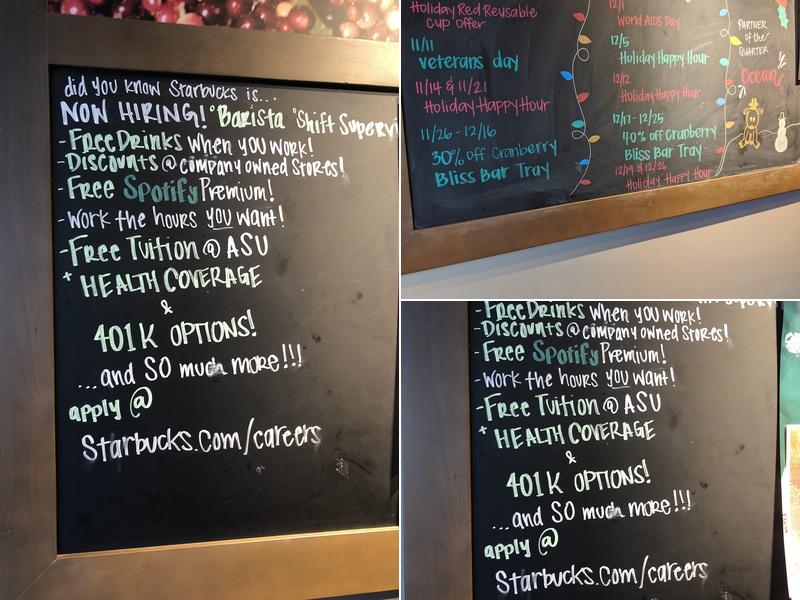 did you know Starbucks is...
NOW HIRING! °Barista °Shift Supervi
-Free Drinks when you work!
-Discounts @ company owned Stores!
-Free Spotify Premium!
-work the hours you want!
-Free Tuition @ ASU
+ HEALTH COVERAGE
&
401K OPTIONS!
...and SO much more!!!
apply @
Starbucks.com/careers
Holiday Red Reusable
cup offer
11/11
veterans day
11/14 & 11/21
Holiday Happy Hour
11/26 - 12/16
30% off Cranberry
Bliss Bar Tray
12/1
World AIDS Day
12/5
Holiday Happy Hour
12/12
Holiday Happy Hour
12/17 - 12/25
40% off Cranberry
Bliss Bar Tray
12/19 & 12/26
Holiday Happy Hour
PARTNER
of the
QUARTER
Ocean
-Free Drinks when you work!
-Discounts @ company owned Stores!
-Free Spotify Premium!
-work the hours you want!
-Free Tuition @ ASU
+ HEALTH COVERAGE
&
401K OPTIONS!
...and SO much more!!!
apply @
Starbucks.com/careers